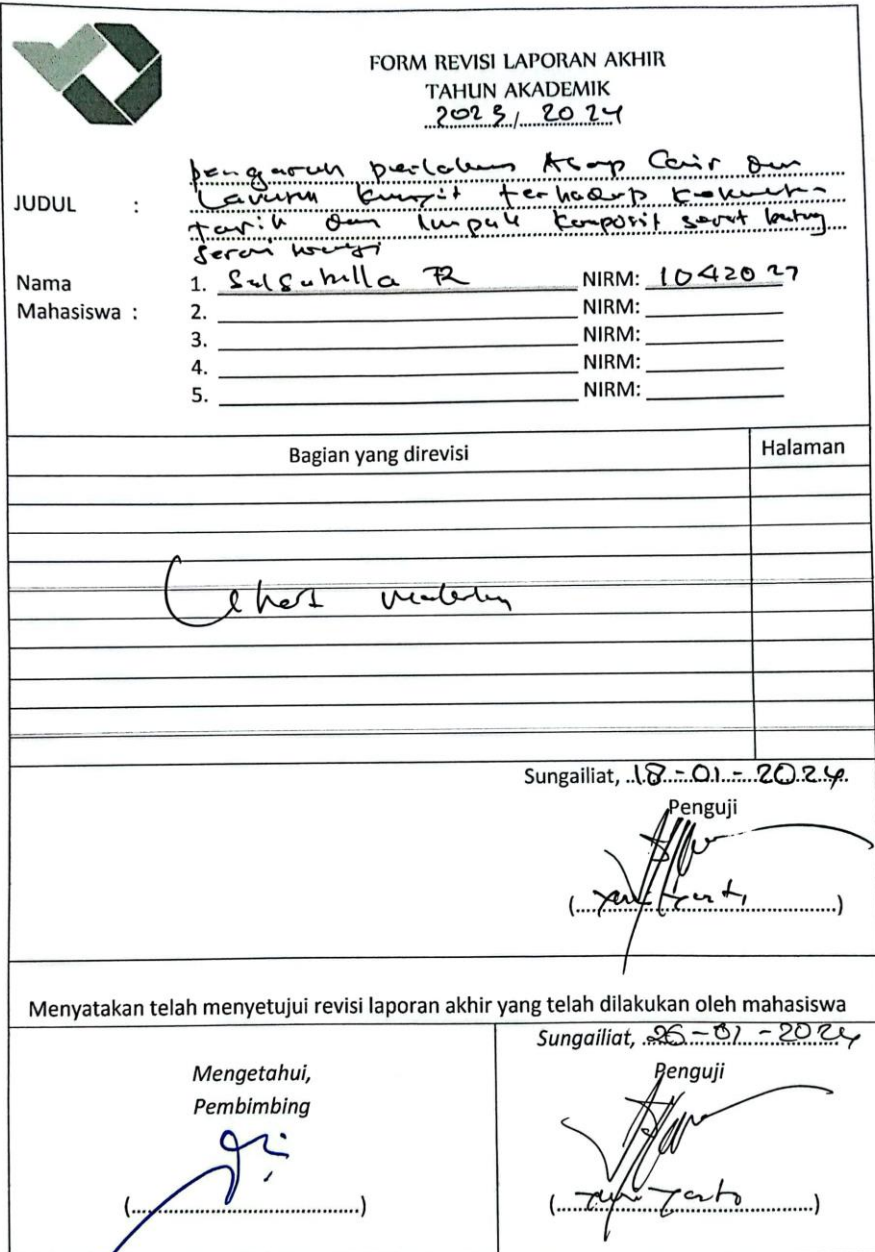 FORM REVISI LAPORAN AKHIR
TAHUN AKADEMIK
2023/2024
JUDUL :
pengaruh perlakuan Asap Cair dan
Larutan kunyit terhadap kekuatan
tarik dan Impak komposit serat batang
serai wangi
Nama
Mahasiswa :
1. Salsabilla ZR NIRM: 1042027
2. NIRM:
3. NIRM:
4. NIRM:
5. NIRM:
Bagian yang direvisi Halaman
Lihat
Sungailiat, 18-01-2024
Penguji
(Yuliyanto)
Menyatakan telah menyetujui revisi laporan akhir yang telah dilakukan oleh mahasiswa
Mengetahui,
Pembimbing
(..............................)
Sungailiat, 26-01-2024
Penguji
(Yuliyanto)